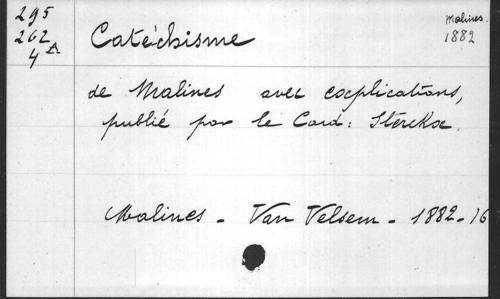 295
262
4 A
Malines.
1882
Catéchisme
de Malines avec explications,
publié par le Card: Sterckx.
Malines - Van Velsem - 1882 - 16